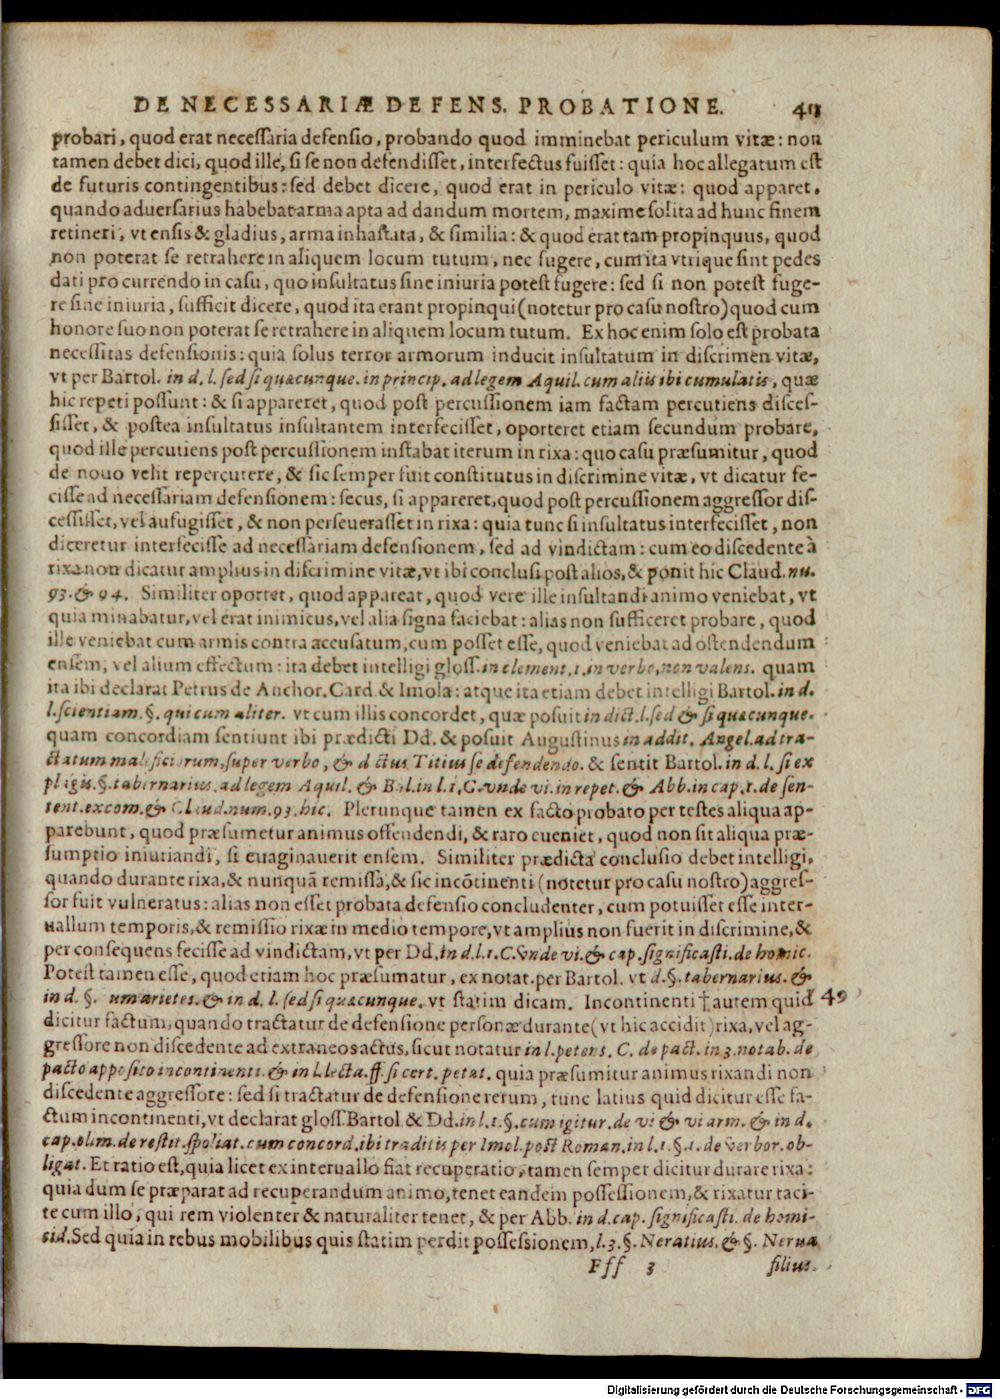 DE NECESSARIÆ DEFENS. PROBATIONE.
probari, quod erat necessaria defensio, probando quod imminebat periculum vitæ: non
tamen debet dici, quod ille, si se non defendisset, interfectus fuisset: quia hoc allegatum est
de futuris contingentibus: sed debet dicere, quod erat in periculo vitæ: quod apparet,
quando aduersarius habebat arma apta ad dandum mortem, maxime solita ad hunc finem
retineri, vt ensis & gladius, arma inhastata, & similia: & quod erat tam propinquus, quod
non poterat se retrahere in aliquem locum tutum, nec fugere, cum ita vtrique sint pedes
dati pro currendo in casu, quo insultatus sine iniuria potest fugere: sed si non potest fuge-
re sine iniuria, sufficit dicere, quod ita erant propinqui (notetur pro casu nostro) quod cum
honore suo non poterat se retrahere in aliquem locum tutum. Ex hoc enim solo est probata
necessitas defensionis: quia solus terror armorum inducit insultatum in discrimen vitæ,
vt per Bartol. in d. l. sed si quacunque. in princip. ad legem Aquil. cum aliis ibi cumulatis, quæ
hic repeti possunt: & si appareret, quod post percussionem iam factam percutiens disces-
sisset, & postea insultatus insultantem interfecisset, oporteret etiam secundum probare,
quod ille percutiens post percussionem instabat iterum in rixa: quo casu præsumitur, quod
de nouo velit repercutere, & sic semper fuit constitutus in discrimine vitæ, vt dicatur fe-
cisse ad necessariam defensionem: secus, si appareret, quod post percussionem aggressor dis-
cessisset, vel aufugisset, & non perseuerasset in rixa: quia tunc si insultatus interfecisset, non
diceretur interfecisse ad necessariam defensionem, sed ad vindictam: cum eo discedente à
rixa non dicatur amplius in discrimine vitæ, vt ibi conclusi post alios, & ponit hic Claud. nu.
93. & 94. Similiter oportet, quod appareat, quod vere ille insultandi animo veniebat, vt
quia minabatur, vel erat inimicus, vel alia signa faciebat: alias non sufficeret probare, quod
ille veniebat cum armis contra accusatum, cum posset esse, quod veniebat ad ostendendum
ensem, vel alium effectum: ita debet intelligi gloss. in clement. 1. in verbo, non valens. quam
ita ibi declarat Petrus de Anchor. Card. & Imola: atque ita etiam debet intelligi Bartol. in d.
l. scientiam. §. qui cum aliter. vt cum illis concordet, quæ posuit in dict. l. sed & si quacunque.
quam concordiam sentiunt ibi prædicti Dd. & posuit Augustinus in addit. Angel. ad tra-
ctatum maleficiorum, super verbo, & d ctus Titius se defendendo. & sentit Bartol. in d. l. si ex
plagis. §. tabernarius. ad legem Aquil. & Bal. in l. 1. C. vnde vi. in repet. & Abb. in cap. 1. de sen-
tent. excom. & Claud. num. 93. hic. Plerunque tamen ex facto probato per testes aliqua ap-
parebunt, quod præsumetur animus offendendi, & raro eueniet, quod non sit aliqua præ-
sumptio iniuriandi, si euaginauerit ensem. Similiter prædicta conclusio debet intelligi,
quando durante rixa, & nunquã remissa, & sic incõtinenti (notetur pro casu nostro) aggres-
sor fuit vulneratus: alias non esset probata defensio concludenter, cum potuisset esse inter-
uallum temporis, & remissio rixæ in medio tempore, vt amplius non fuerit in discrimine, &
per consequens fecisse ad vindictam, vt per Dd. in d. l. 1. C. vnde vi. & cap. significasti. de homic.
Potest tamen esse, quod etiam hoc præsumatur, ex notat. per Bartol. vt d. §. tabernarius. &
in d. §. um arietes. & in d. l. sed si quacunque. vt statim dicam. Incontinenti † autem quid 49
dicitur factum, quando tractatur de defensione personæ durante (vt hic accidit) rixa, vel ag-
gressore non discedente ad extraneos actus, sicut notatur in l. petens. C. de pact. in 3. notab. de
pacto apposito incontinenti. & in l. lecta. ff. si cert. petat. quia præsumitur animus rixandi non
discedente aggressore: sed si tractatur de defensione rerum, tunc latius quid dicitur esse fa-
ctum incontinenti, vt declarat gloss. Bartol & Dd. in l. 1. §. cum igitur. de vi & vi arm. & in d.
cap. olim. de restit. spoliat. cum concord. ibi traditis per Imol. post Roman. in l. 1. §. 1. de verbor. ob-
ligat. Et ratio est, quia licet ex interuallo fiat recuperatio, tamen semper dicitur durare rixa:
quia dum se præparat ad recuperandum animo, tenet eandem possessionem, & rixatur taci-
te cum illo, qui rem violenter & naturaliter tenet, & per Abb. in d. cap. significasti. de homi-
cid. Sed quia in rebus mobilibus quis statim perdit possessionem, l. 3. §. Neratius. & §. Nerua
Fff 3 filius.
Digitalisierung gefördert durch die Deutsche Forschungsgemeinschaft - DFG